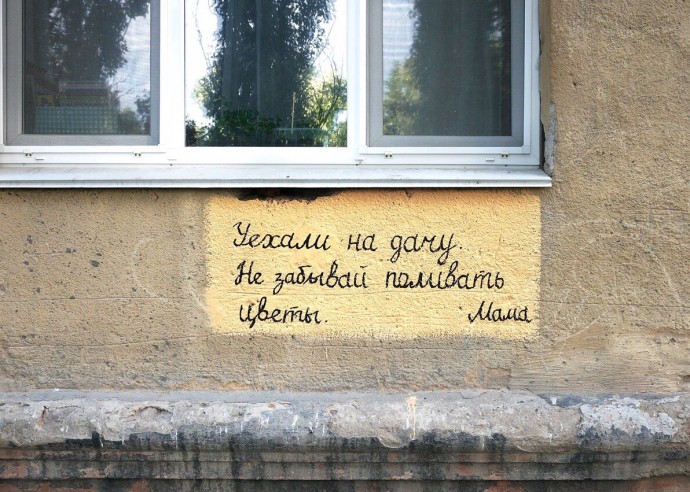 Уехали на дачу.
Не забывай поливать
цветы. Мама